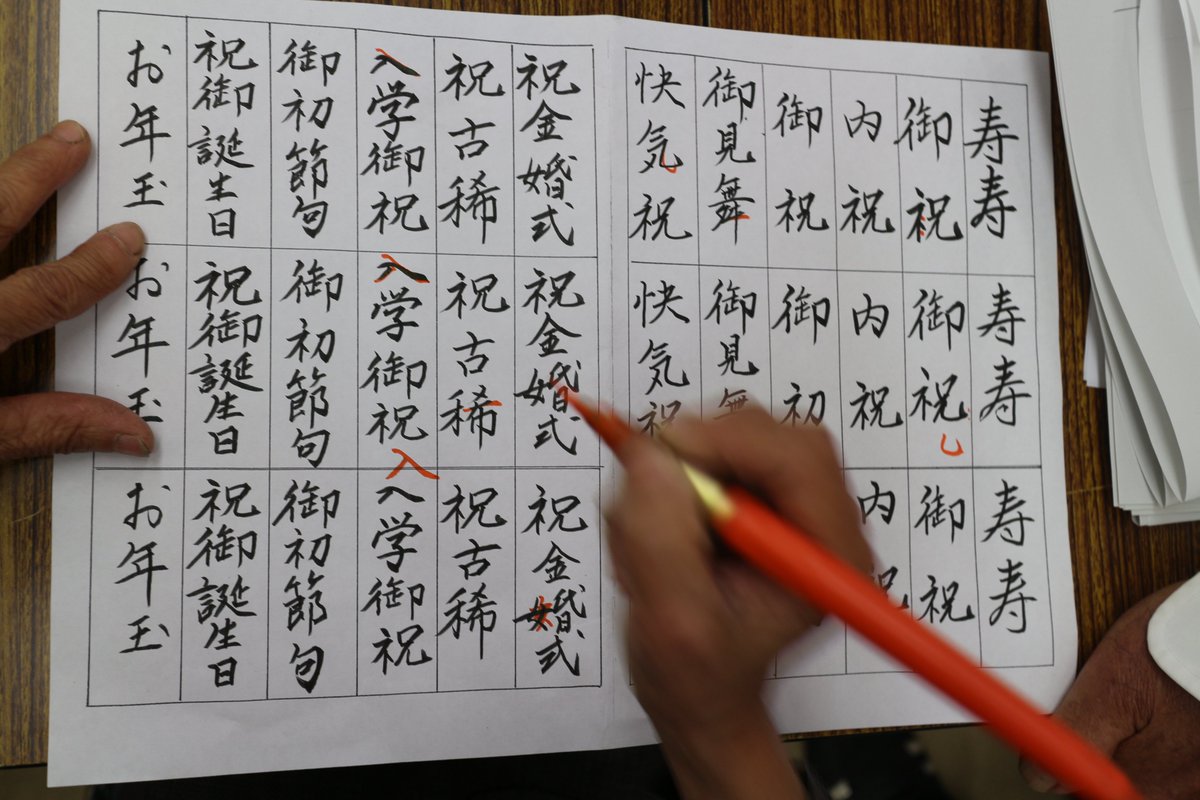 寿寿
御祝
内祝
御祝
御見舞
快気祝
寿寿
御祝
内祝
御初
御見
快気祝
寿寿
御祝
内祝
祝金婚式
祝古稀
入学御祝
御初節句
祝御誕生日
お年玉
祝金婚式
祝古稀
入学御祝
御初節句
祝御誕生日
お年玉
祝金婚式
祝古稀
入
入学御祝
御初節句
祝御誕生日
お年玉